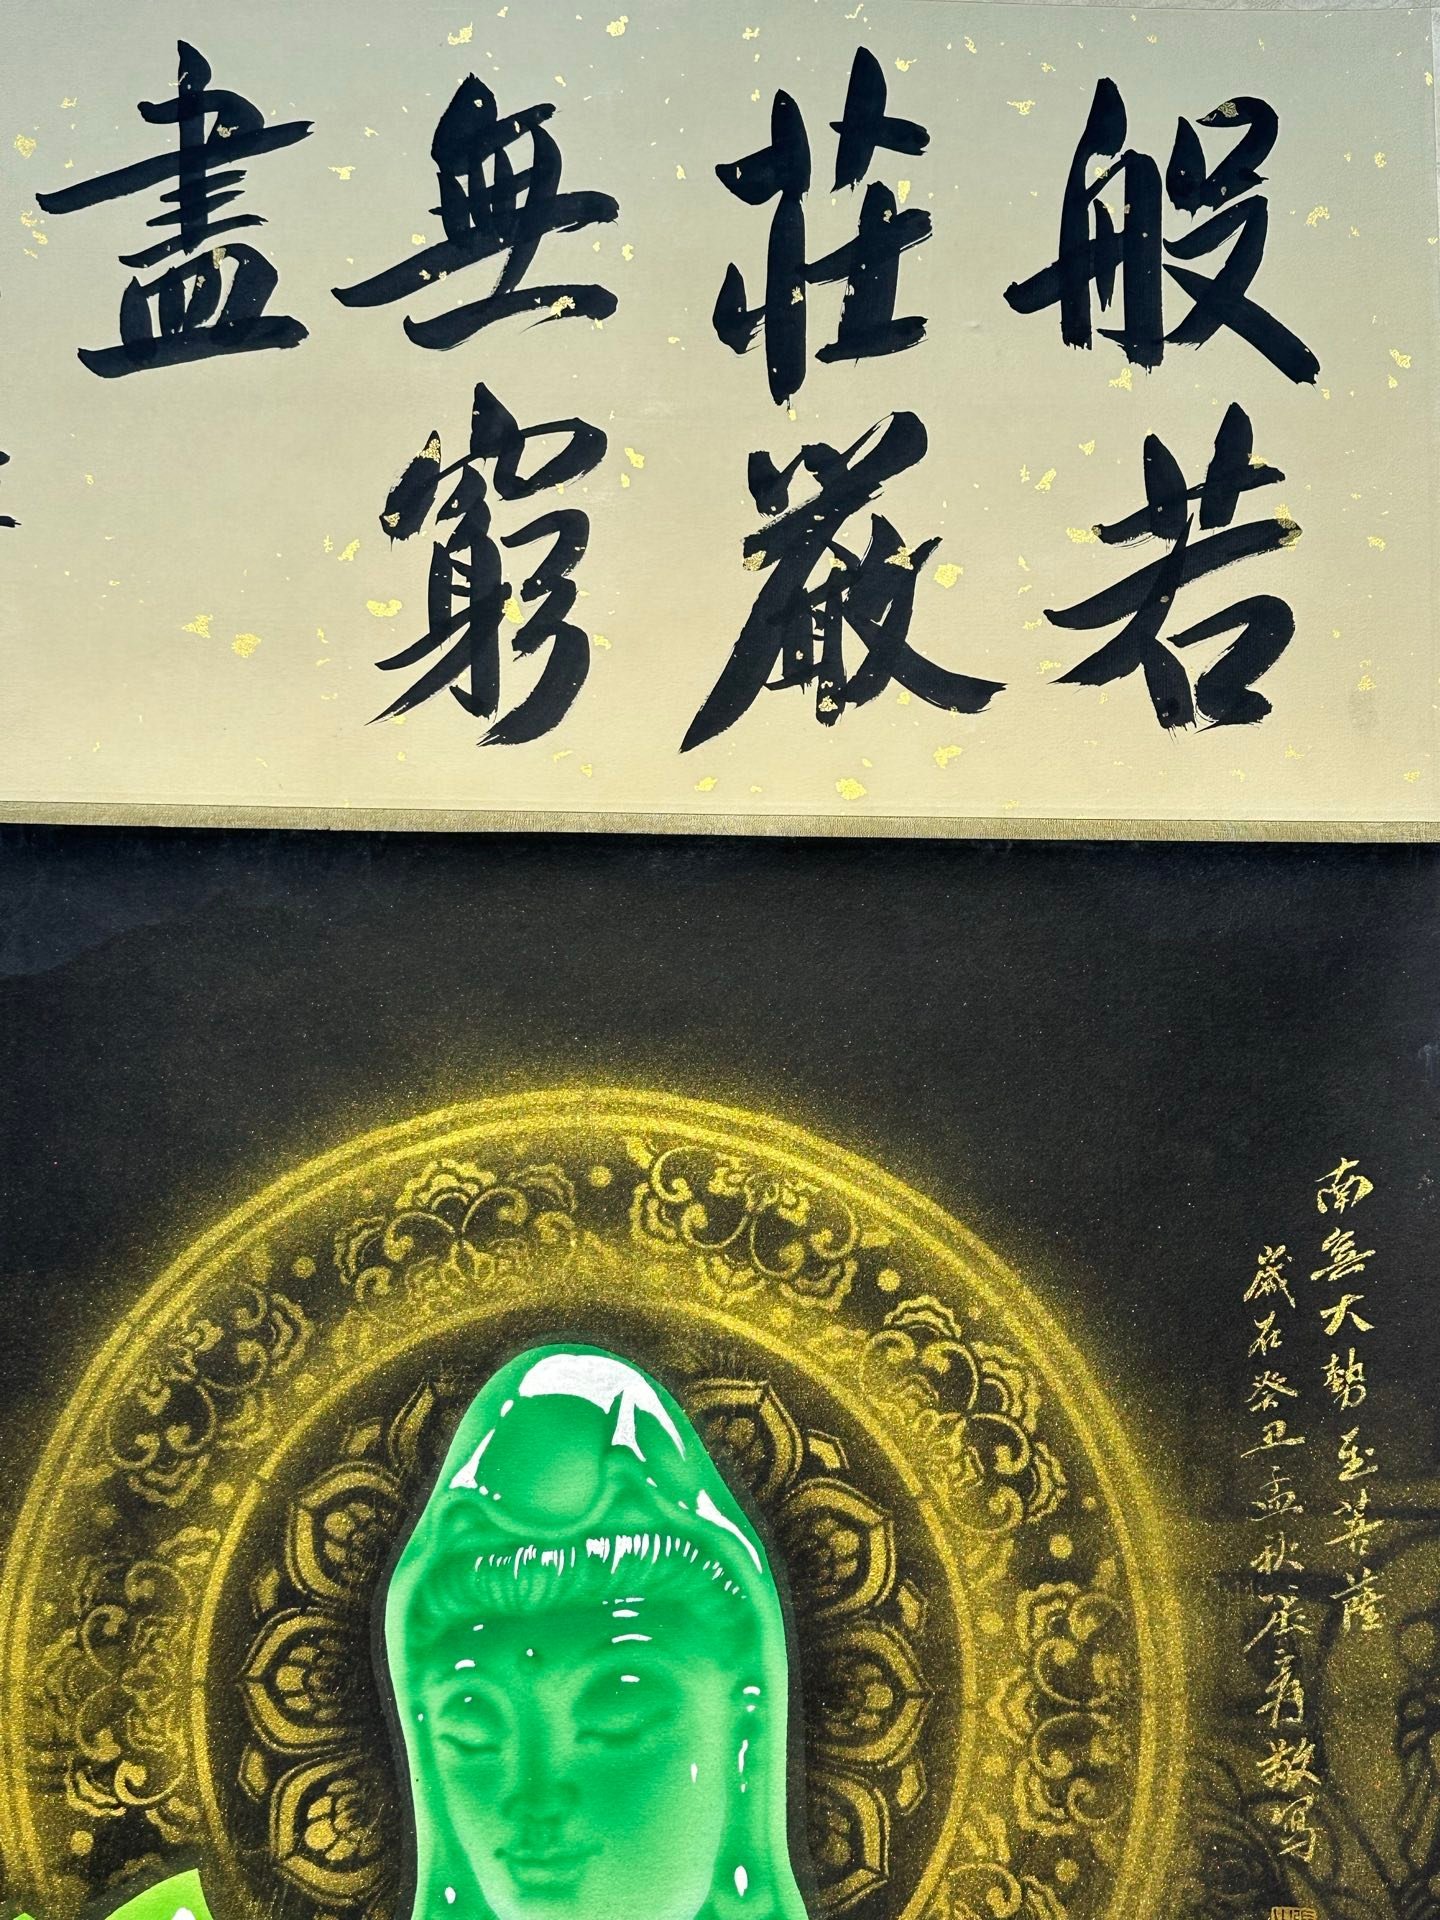 般若
莊嚴
無窮
盡
南無大勢至菩薩
歲在癸丑孟秋
敬寫